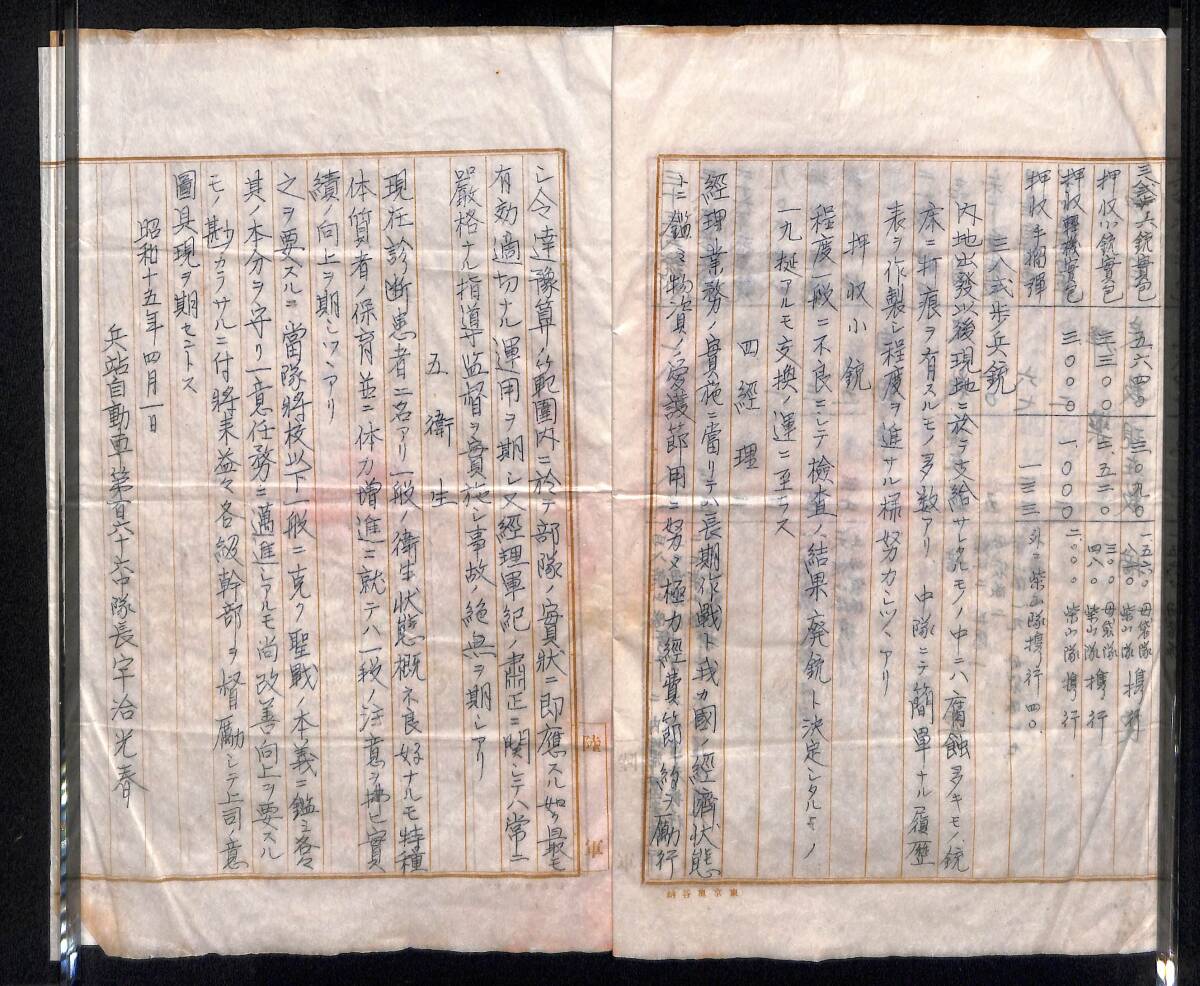 三八式歩兵銃實包 五六四〇 三〇九〇 一五六〇 母袋隊 携行
押収小銃實包 三五二〇 三〇〇 母袋隊 携行
四八〇 柴山隊
押収軽機實包 三〇〇〇 一〇〇〇 二〇〇〇 柴山隊 携行
押収手榴弾 一三三 外ニ柴山隊携行四〇
三八式歩兵銃
内地出發以後現地ニ於テ支給サレタルモノノ中ニハ腐蝕多キモノ銃
床ニ打痕ヲ有スルモノ多数アリ 中隊ニテ簡單ナル履歴
表ヲ作製シ程度ヲ進サル様努力シツヽアリ
押収小銃
程度一般ニ不良ニシテ檢査ノ結果廃銃ト決定シタルモノ
一九挺アルモ交換ノ運ニ至ラス
四 經理
經理業務ノ實施ニ當リテハ長期作戰ト我カ國ノ經濟状態
ニ鑑ミ物資ノ愛護節用ニ努メ極力經費節約ヲ励行
シ令達豫算ノ範圍内ニ於テ部隊ノ實状ニ即應スル如ク最モ
有効適切ナル運用ヲ期シ又經理軍紀ノ肅正ニ関シテハ常ニ
嚴格ナル指導監督ヲ實施シ事故ノ絶無ヲ期シアリ
五 衛生
現在診断患者二名アリ一般ノ衛生状態概ネ良好ナルモ特種
体質者ノ保育並ニ体力増進ニ就テハ一段ノ注意ヲ拂ヒ實
績ノ向上ヲ期シツヽアリ
之ヲ要スルニ當隊將校以下一般ニ克ク聖戰ノ本義ニ鑑ミ各々
其ノ本分ヲ守リ一意任務ニ邁進シアルモ尚改善向上ヲ要スル
モノ尠カラサルニ付將来益々各級幹部ヲ督励シテ上司ノ意
圖具現ヲ期セントス
昭和十五年四月一日
兵站自動車第百六十六中隊長宇治光春
陸軍
東京鳳谷納